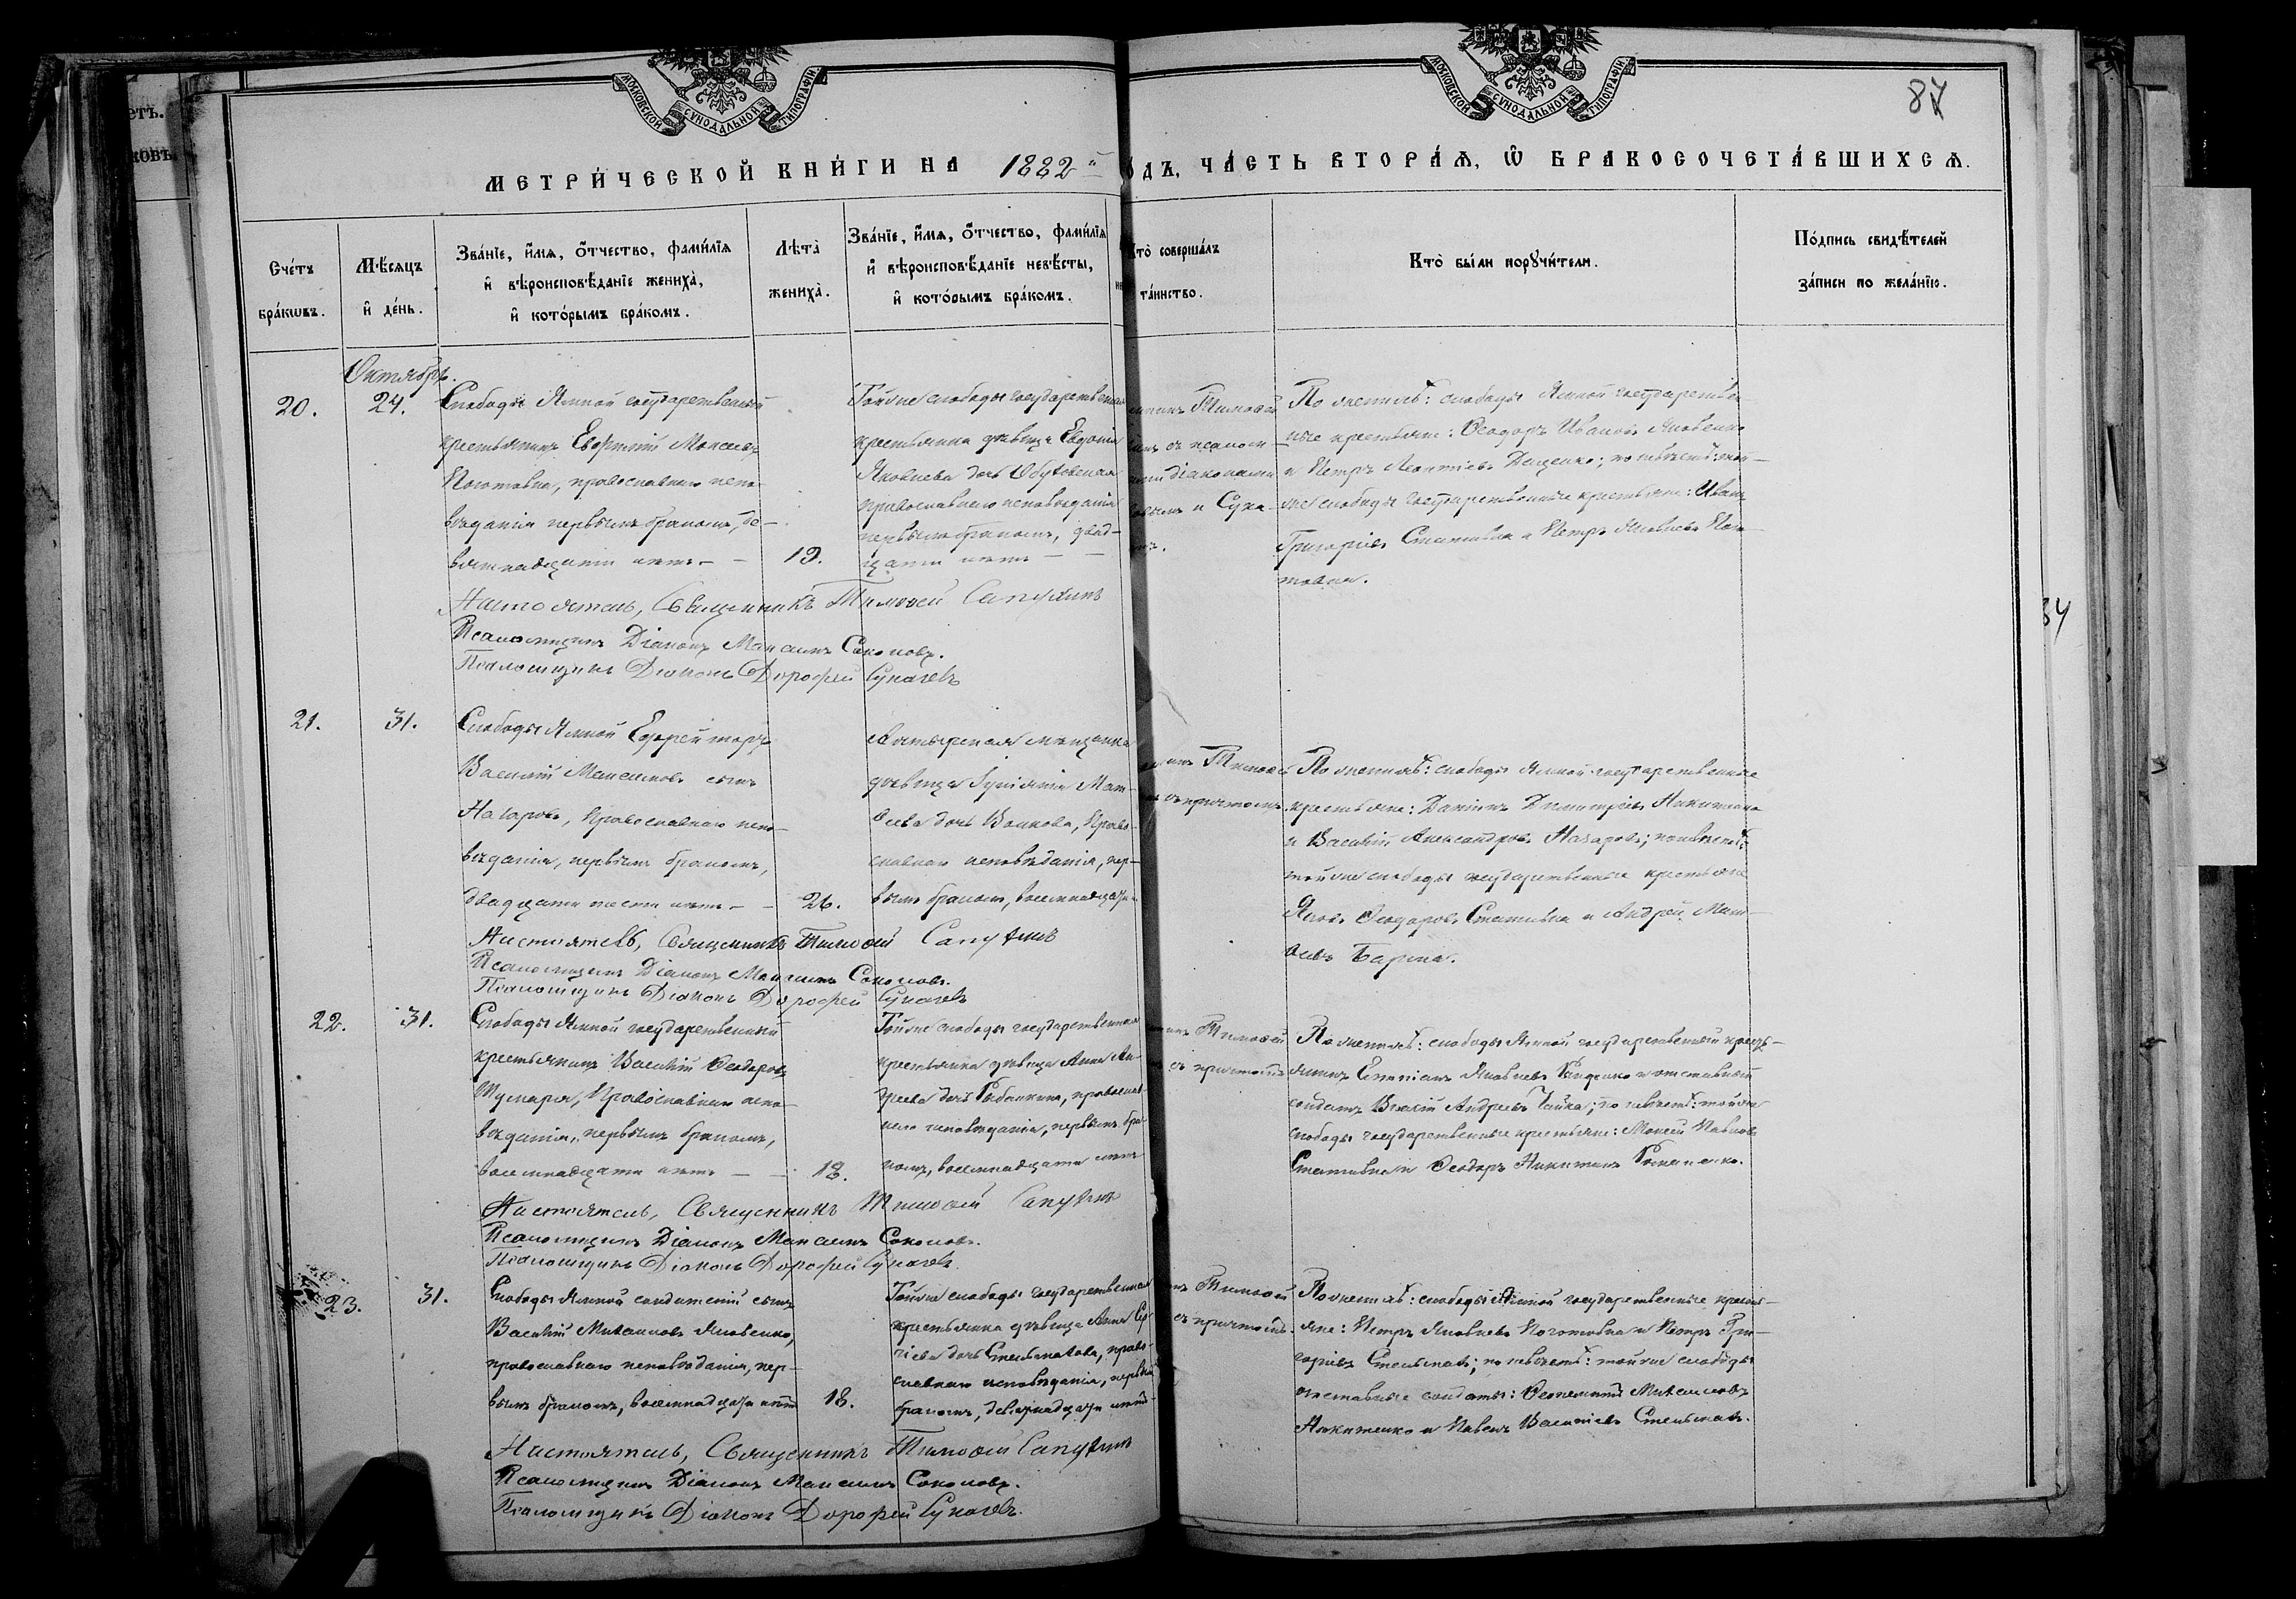 МОСКОВСКОЙ СУНОДАЛЬНОЙ ТИПОГРАФІИ.
МОСКОВСКОЙ СУНОДАЛЬНОЙ ТИПОГРАФІИ.
87
етъ.
ковъ
МЕТРИ́ЧЕСКОЙ КНИ́ГИ НА 1882й
ОДЪ, ЧА́СТЬ ВТОРА́Ѧ, Ѿ БРАКОСОЧЕТА́ВШИХСѦ.
Сче́тъ бра́кѡвъ.
Мѣ́сяцъ и҆ де́нь.
Зва́нїе, и҆́мѧ, ѻ҆́тчество, фами́лїѧ и҆ вѣроисповѣ́данїе жениха̀, и҆ кото́рымъ бра́комъ.
Лѣта̀ жениха̀.
Зва́нїе, и҆́мѧ, ѻ҆́тчество, фами́лїѧ и҆ вѣроисповѣ́данїе невѣ́сты, и҆ кото́рымъ бра́комъ.
Кто̀ соверша́лъ та́инство.
Кто̀ бы́ли порꙋчи́тели.
По́дпись свидѣ́телей за́писи по жела́нїю.
Октябрь.
20.
24.
Слободы Ямной государственный
крестьянинъ Евфимій Моисеевъ
Коготовка, православнаго испо-
вѣданія первымъ бракомъ, де-
вятнадцати лѣтъ
19.
Тойже слободы государственная
крестьянка дѣвица Евдокія
Яковлева дочь
православнаго исповѣданія
первымъ бракомъ, двад-
цати лѣтъ
Тимоѳей
съ псалом-
діаконами
и Сука-
По женихѣ: слободы Ямной государствен-
ные крестьяне: Ѳеодоръ Ивановъ Яковенко
и Петръ Леонтіевъ Даценко; по невѣстѣ: той-
же слободы государственные крестьяне: Иванъ
Григоріевъ Стативка и Петръ Яковлевъ Кого-
товка.
Настоятель, Священникъ Тимоѳей Сапухинъ
Псаломщикъ Діаконъ Максимъ Соколовъ.
Псаломщикъ Діаконъ Дорофей Сукачевъ
34
21.
31.
Слободы Ямной Ефрейторъ
Василій Максимовъ сынъ
Назаровъ, Православнаго испо-
вѣданія, первымъ бракомъ,
двадцати шести лѣтъ
26.
Ахтырская мѣщанка
дѣвица Матѳеева дочь Волкова, Право-
славнаго исповѣданія, пер-
вымъ бракомъ, восемнадцати
Тимоѳей
съ причтомъ.
По женихѣ: слободы Ямной государственные
крестьяне: Даніилъ Димитріевъ
и Василій Александровъ Назаровъ; по невѣстѣ:
тойже слободы государственные крестьяне
Яковъ Ѳеодоровъ Стативка и Андрей Мат-
ѳеевъ
Настоятель, Священникъ Тимоѳей Сапухинъ
Псаломщикъ Діаконъ Максимъ Соколовъ.
Псаломщикъ Діаконъ Дорофей Сукачевъ
22.
31.
Слободы Ямной государственный
крестьянинъ Василій Ѳеодоровъ
Православнаго испо-
вѣданія, первымъ бракомъ,
восемнадцати лѣтъ
18.
Тойже слободы государственная
крестьянка дѣвица Анна Ан-
дреева дочь Рыбалкина, православ-
наго исповѣданія, первымъ бра-
комъ, восемнадцати лѣтъ
Тимоѳей
съ причтомъ
По женихѣ: слободы Ямной государственный кресть-
янинъ Яковлевъ и отставный
солдатъ Василій Андреевъ Чайка; по невѣстѣ: тойже
слободы государственные крестьяне: Моисей Павловъ
Стативка и Ѳеодоръ Никитинъ Романенко.
Настоятель, Священникъ Тимоѳей Сапухинъ
Псаломщикъ Діаконъ Максимъ Соколовъ.
Псаломщикъ Діаконъ Дорофей Сукачевъ.
23.
31.
Слободы Ямной солдатскій сынъ
Василій Михаиловъ Яковенко,
православнаго исповѣданія, пер-
вымъ бракомъ, восемнадцати лѣтъ
18.
Тойже слободы государственная
крестьянка дѣвица Анна Сер-
гіева дочь Стельмахова, право-
славнаго исповѣданія, первымъ
бракомъ, девятнадцати лѣтъ
Тимоѳей
съ причтомъ.
По женихѣ: слободы Ямной государственные кресть-
яне: Петръ Яковлевъ Коготовка и Петръ Гри-
горіевъ Стельмахъ; по невѣстѣ: тойже слободы
отставные солдаты: Михаиловъ
Никитенко и Павелъ Василіевъ Стельмахъ.
Настоятель, Священникъ Тимоѳей Сапухинъ
Псаломщикъ Діаконъ Максимъ Соколовъ.
Псаломщикъ Діаконъ Дорофей Сукачевъ.